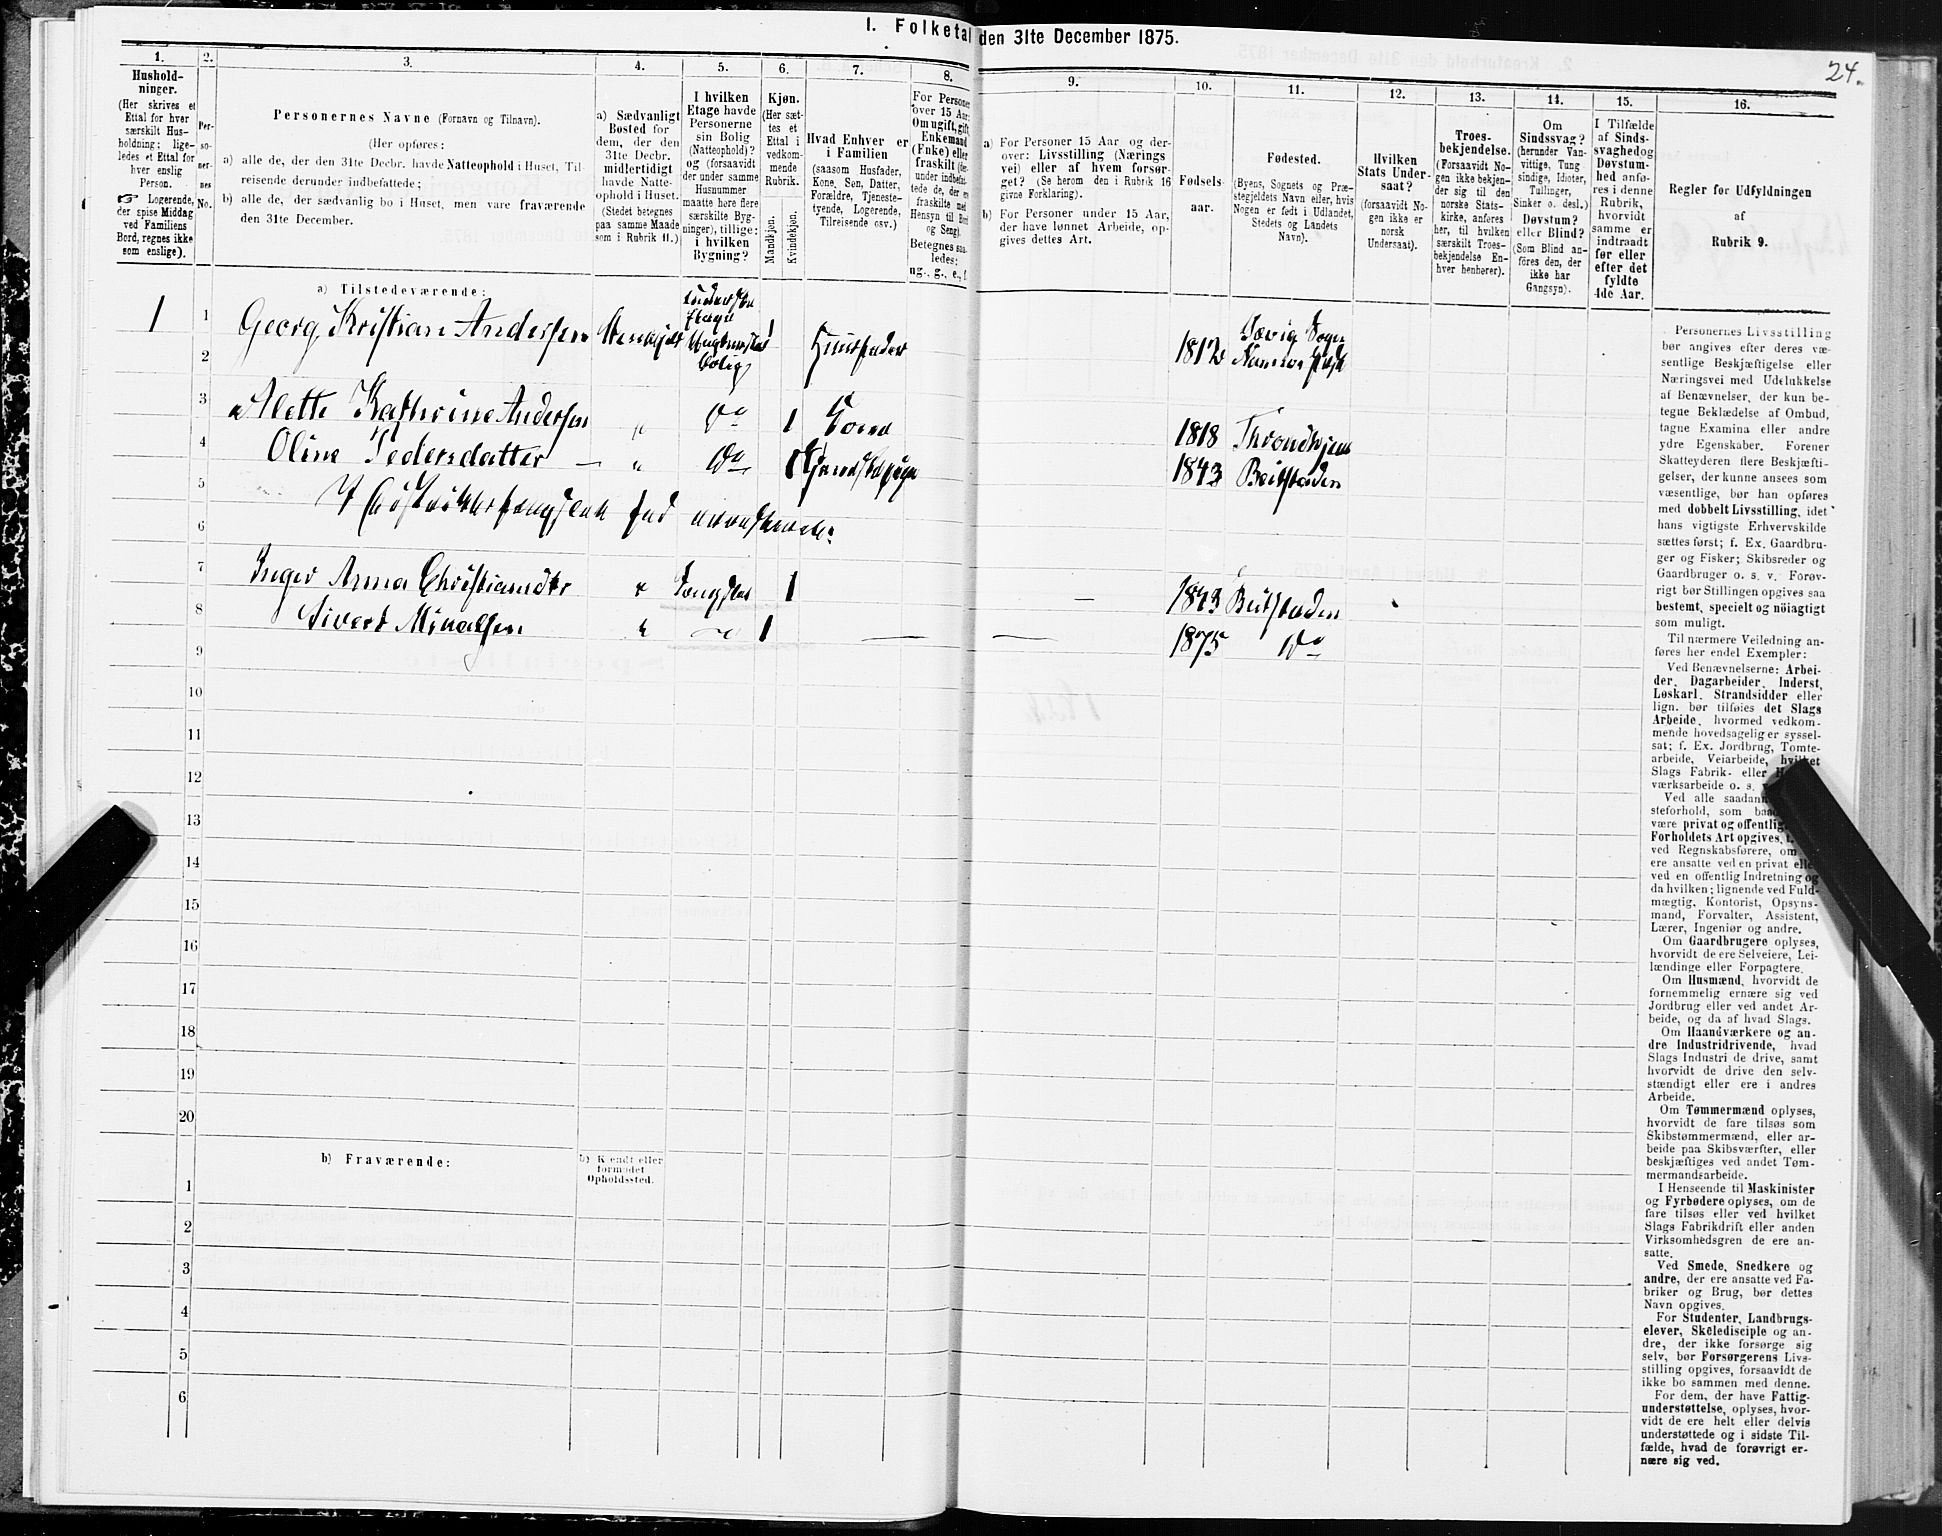 I. Folketal den 31te December 1875.
24.
1.
Hushold-
ninger.
(Her skrives et
Ettal for hver
særskilt Hus-
holdning; lige-
ledes et Ettal for
hver enslig
Person.
☞ Logerende,
der spise Middag
ved Familiens
Bord, regnes ikke
som enslige).
2.
Per-
so-
ner-
nes
No.
3.
Personernes Navne (Fornavn og Tilnavn).
(Her opføres:
a) alle de, der den 31te Decbr. havde Natteophold i Huset, Til-
reisende derunder indbefattede;
b) alle de, der sædvanlig bo i Huset, men vare fraværende
den 31te December.
4.
a) Sædvanligt
Bosted for
dem, der den
31te Decbr.
midlertidigt
havde Natte-
ophold i Huset.
(Stedet betegnes
paa samme Maade
som i Rubrik 11.)
5.
I hvilken
Etage havde
Personerne
sin Bolig
(Natteophold)?
og (forsaavidt
der under samme
Husnummer
maatte høre flere
særskilte Byg-
ninger), tillige:
i hvilken
Bygning?
6.
Kjøn.
(Her sæt-
tes et
Ettal i
vedkom-
mende
Rubrik.
Mandkjøn.
Kvindekjøn.
7.
Hvad Enhver er
i Familien
(saasom Husfader,
Kone, Søn, Datter,
Forældre, Tjeneste-
tyende, Logerende,
Tilreisende osv.)
8.
For Personer
over 15 Aar:
Om ugift, gift,
Enkemand
(Fnke) eller
fraskilt (der-
under indbefat-
tede de, der ere
fraskilte med
Hensyn til Bord
og Seng).
Betegnes saa-
ledes:
ug., g., e., f.
9.
a) For Personer 15 Aar og der-
over: Livsstilling (Nærings
vei) eller af hvem forsør-
get? (Se herom den i Rubrik 16
givne Forklaring).
b) For Personer under 15 Aar,
der have lønnet Arbeide, op-
gives dettes Art.
10.
Fødsels-
aar.
11.
Fødested.
(Byens, Sognets og Præ-
stegjeldets Navn eller, hvis
Nogen er født i Udlandet,
Stedets og Landets
Navn).
12.
Hvilken
Stats Under-
saat?
(forsaavidt No-
gen ikke er
norsk
Undersaat).
13.
Troes-
bekjendelse.
(Forsaavidt No-
gen ikke bekjen-
der sig til den
norske Stats-
kirke, anføres
her, til hvilken
særskilt Troes-
bekjendelse En-
hver henhører).
14.
Om
Sindssvag?
(herunder Van-
vittige, Tung
sindige, Idioter,
Tullinger,
Sinker o. desl.)
Døvstum?
eller Blind?
(Som Blind an-
føres den, der
ikke har
Gangsyn).
15.
I Tilfælde
af Sinds-
svaghed og
Døvstum-
hed anfø-
res i denne
Rubrik,
hvorvidt
samme er
indtraadt
før eller
efter det
fyldte
4de Aar.
16.
Regler for Udfyldningen
af
Rubrik 9.
a) Tilstedeværende:
1 1 Georg Kristian Andersen Stenkjær Underste Etage Bolig 1 Huusfader 1812 Sogn
2
3 Alette Kathrine Andersen " Do 1 Kone 1818 Throndhjem
4 Oline Pedersdatter — " Do 1 1843 Beitstaden
5
6
7 Inger Anna Christiansdtr " 1 — 1843 Beitstaden
8 Sivert " 1 — — 1875 Do
9
10
11
12
13
14
15
16
17
18
19
20
b) Fraværende:
b) Kjendt eller
formodet
Opholdssted.
1
2
3
4
5
6
Personernes Livsstilling
bør angives efter deres væ-
sentlige Beskjæftigelse eller
Næringsvei med Udelukkelse
af Benævnelser, der kun be-
tegne Beklædelse af Ombud,
tagne Examina eller andre
ydre Egenskaber. Forener
Skatteyderen flere Beskjæfti-
gelser, der kunne ansees som
væsentlige, bør han opføres
med dobbelt Livsstilling, idet
hans vigtigste Erhvervskilde
sættes først; f. Ex. Gaardbru-
ger og Fisker; Skibsreder og
Gaardbruger o. s. v. Forøv-
rigt bør Stillingen opgives saa
bestemt, specielt og nöiagtigt
som muligt.
Til nærmere Veiledning an-
føres her endel Exempler:
Ved Benævnelserne: Arbei-
der, Dagarbeider, Inderst,
Løskarl, Strandsidder eller
lign. bør tilføies det Slags
Arbeide, hvormed vedkom-
mende hovedsagelig er syssel-
sat; f. Ex. Jordbrug, Tomte-
arbeide, Veiarbeide, hvilket
Slags Fabrik- eller
værksarbeide o. s.
Ved alle saadan
steforhold, som
være privat og offentlig
Forholdets Art opgives,
ved Regnskabsførere, om
ere ansatte ved en privat eller
ved en offentlig Indretning og
da hvilken; lignende ved Fuld-
mægtig, Kontorist, Opsyns-
mand, Forvalter, Assistent,
Lærer, Ingeniør og andre.
Om Gaardbrugere oplyses,
hvorvidt de ere Selveiere, Lei-
lændinge eller Forpagtere.
Om Husmænd, hvorvidt de
fornemmelig ernære sig ved
Jordbrug eller ved andet Ar-
beide, og da af hvad Slags.
Om Haandværkere og an-
dre Industridrivende, hvad
Slags Industri de drive, samt
hvorvidt de drive den selv-
stændigt eller ere i andres
Arbeide.
Om Tømmermænd oplyses,
hvorvidt de fare tilsøs som
Skibstømmermænd, eller ar-
beide paa Skibsværfter, eller
beskjæftiges ved andet Tøm-
mermandsarbeide.
I Henseende til Maskinister
og Fyrbødere oplyses, om de
fare tilsøs eller ved hvilket
Slags Fabrikdrift eller anden
Virksomhedsgren de ere an-
satte.
Ved Smede, Snedkere og
andre, der ere ansatte ved Fa-
briker og Brug, bør dettes
Navn opgives.
For Studenter, Landbrugs-
elever, Skoledisciple og an-
dre, der ikke forsørge sig
selv, bør Forsørgerens Livs-
stilling opgives, forsaavidt de
ikke bo sammen med denne.
For dem, der have Fattig-
understøttelse, oplyses, hvor-
vidt de ere helt eller delvis
understøttede og i sidste Til-
fælde, hvad de forøvrigt er-
nære sig ved.